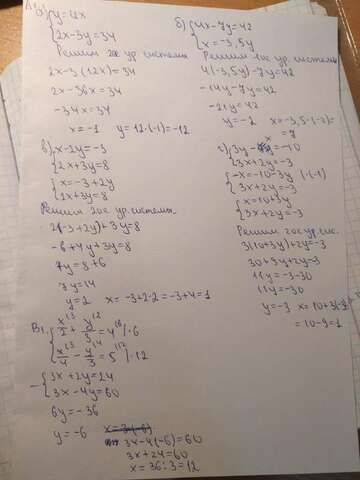 А1
а) {y=12x
{2x-3y=34
Решим 2ое ур. системы
2x-3(12x)=34
2x-36x=34
-34x=34
x=-1 y=12·(-1)=-12
б) {4x-7y=42
{x=-3,5y
Решим 1ое ур. системы
4(-3,5y)-7y=42
-14y-7y=42
-21y=42
y=-2 x=-3,5·(-2)=
=7
в) {x-2y=-3
{2x+3y=8
{x=-3+2y
{2x+3y=8
Решим 2ое ур. системы
2(-3+2y)+3y=8
-6+4y+3y=8
7y=8+6
7y=14
y=2 x=-3+2·2=-3+4=1
г) {3y-x=-10
{3x+2y=-3
{-x=-10-3y |·(-1)
{3x+2y=-3
{x=10+3y
{3x+2y=-3
Решим 2ое ур. сис.
3(10+3y)+2y=-3
30+9y+2y=-3
11y=-3-30
11y=-33
y=-3 x=10+3(-3)=
=10-9=1
В1.
{x/2+y/3=4 |·6
{x/4-y/3=5 |·12
-{3x+2y=24
{3x-4y=60
6y=-36
y=-6
3x-4(-6)=60
3x+24=60
x=36:3=12